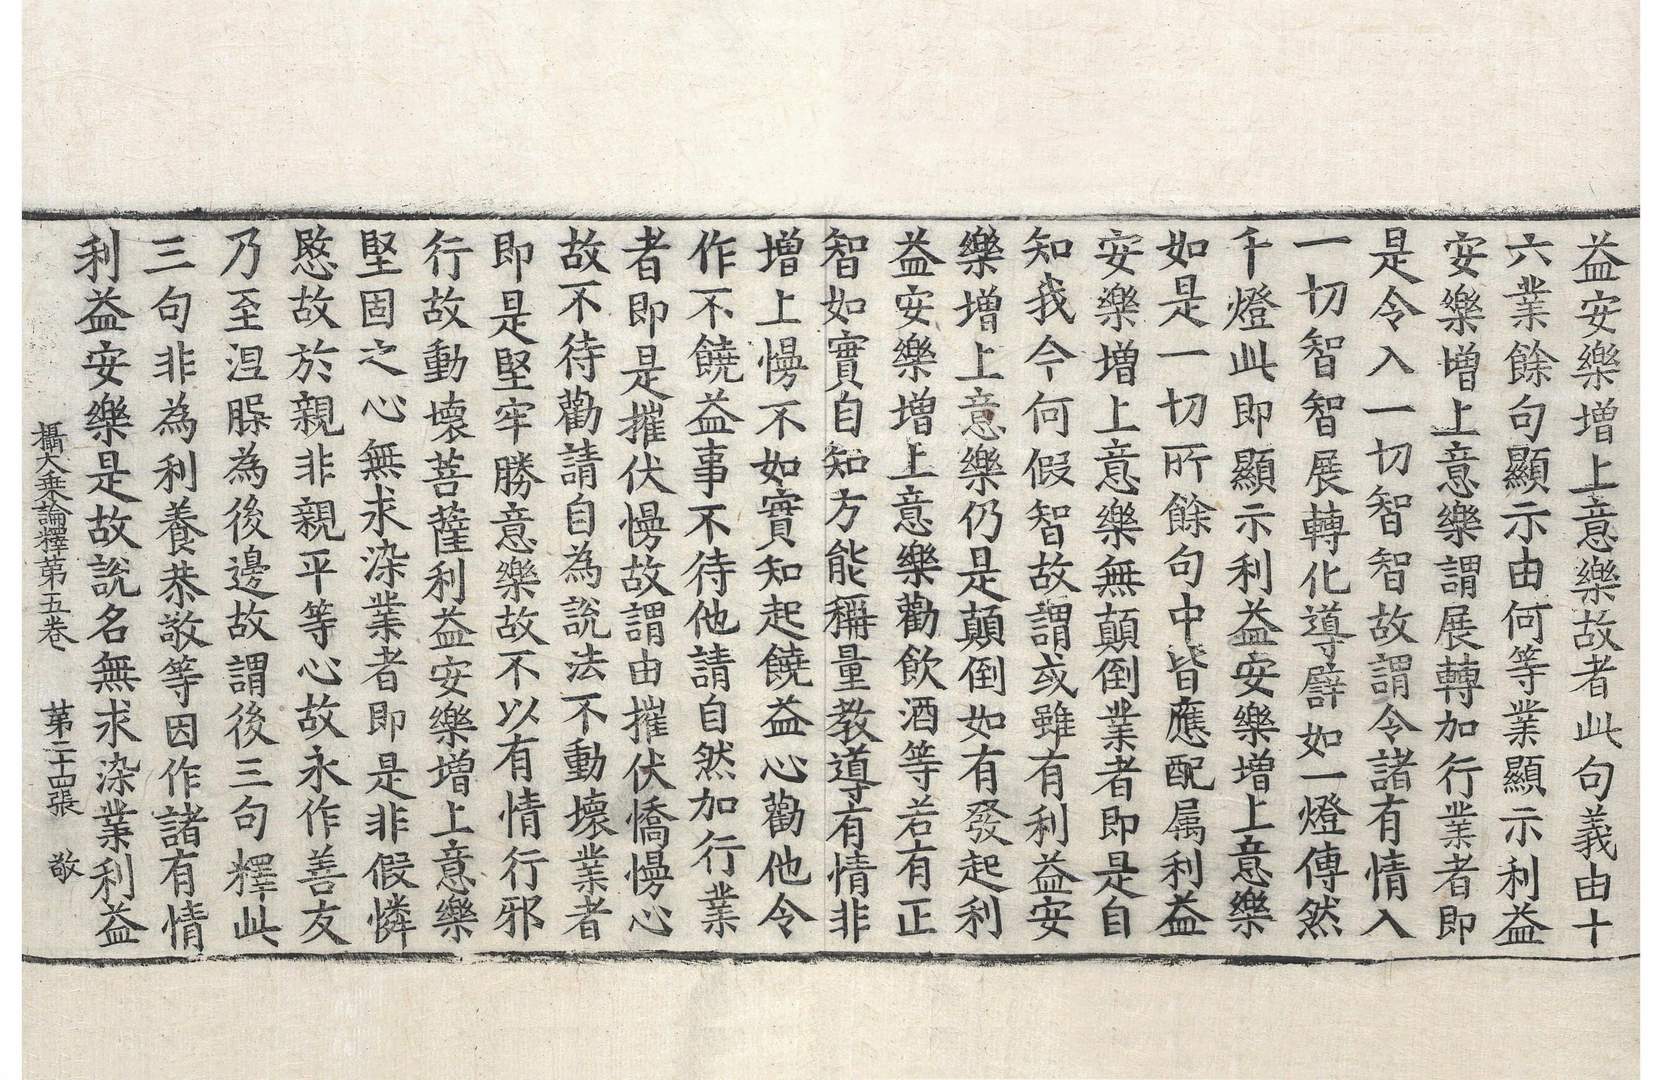 益安樂增上意樂故者此句義由十
六業餘句顯示由何等業顯示利益
安樂增上意樂謂展轉加行業者即
是令入一切智智故謂令諸有情入
一切智智展轉化導譬如一燈傳然
千燈此即顯示利益安樂增上意樂
如是一切所餘句中皆應配属利益
安樂增上意樂無顛倒業者即是自
知我今何假智故謂或雖有利益安
樂增上意樂仍是顛倒如有發起利
益安樂增上意樂勸飲酒等若有正
智如實自知方能稱量教導有情非
增上慢不如實知起饒益心勸他令
作不饒益事不待他請自然加行業
者即是摧伏慢故謂由摧伏憍慢心
故不待勸請自為說法不動壞業者
即是堅牢勝意樂故不以有情行邪
行故動壞菩薩利益安樂增上意樂
堅固之心無求染業者即是非假憐
愍故於親非親平等心故永作善友
乃至涅槃為後邊故謂後三句釋此
三句非為利養恭敬等因作諸有情
利益安樂是故說名無求染業利益
攝大乗論釋第五卷 第二十四張 敬